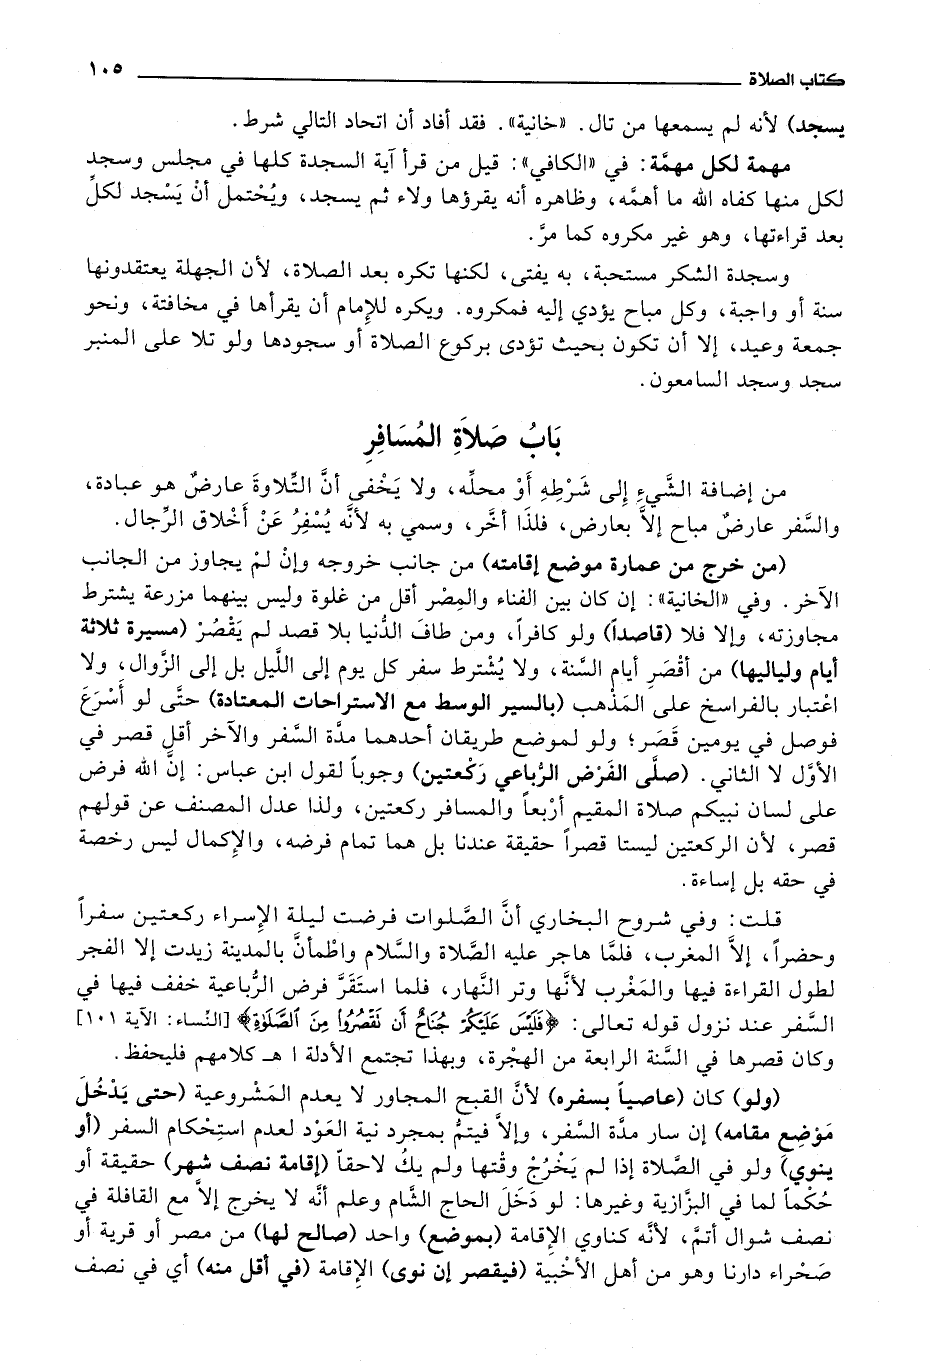 كتاب الصلاة ١٠٥
يسجد) لأنه لم يسمعها من تال. «خانية». فقد أفاد أن اتحاد التالي شرط.
مهمة لكل مهمَّة: في «الكافي»: قيل من قرأ آية السجدة كلها في مجلس وسجد
لكل منها كفاه الله ما أهمَّه، وظاهره أنه يقرؤها ولاء ثم يسجد، ويُحْتمل أنْ يَسْجد لكلِّ
بعد قراءتها، وهو غير مكروه كما مرَّ.
وسجدة الشكر مستحبة، به يفتى، لكنها تكره بعد الصلاة، لأن الجهلة يعتقدونها
سنة أو واجبة، وكل مباح يؤدي إليه فمكروه. ويكره للإمام أن يقرأها في مخافتة، ونحو
جمعة وعيد، إلا أن تكون بحيث تؤدى بركوع الصلاة أو سجودها ولو تلا على المنبر
سجد وسجد السامعون.
بَابُ صَلاَةِ المُسَافِرِ
من إضافة الشَّيءِ إلى شَرْطِهِ أَوْ محلِّه، ولا يَخْفى أنَّ التِّلاوةَ عارضٌ هو عبادة،
والسَّفر عارضٌ مباح إلاَّ بعارض، فلذَا أخَّر، وسمي به لأنَّه يُسْفِرُ عَنْ أَخْلاق الرِّجال.
(من خرج من عمارة موضع إقامته) من جانب خروجه وإنْ لمْ يجاوز من الجانب
الآخر. وفي «الخانية»: إن كان بين الفناء والمِصْر أقل من غلوة وليس بينهما مزرعة يشترط
مجاوزته، وإلا فلا (قاصداً) ولو كافراً، ومن طافَ الدُّنيا بلا قصد لم يَقْصُرْ (مسيرة ثلاثة
أيام ولياليها) من أقْصَرِ أيام السَّنة، ولا يُشْترط سفر كل يوم إلى اللَّيل بل إلى الزَّوال، ولا
اعْتبار بالفراسخ على المَذْهب (بالسير الوسط مع الاستراحات المعتادة) حتَّى لو أَسْرَعَ
فوصل في يومين قَصَر؛ ولو لموضع طريقان أحدهما مدَّة السَّفر والآخر أقل قصر في
الأوَّل لا الثاني. (صلَّى الفَرْض الرُّباعي رَكْعتين) وجوباً لقول ابن عباس: إنَّ الله فرض
على لسان نبيكم صلاة المقيم أرْبعاً والمسافر ركعتين، ولذا عدل المصنف عن قولهم
قصر، لأن الركعتين ليستا قصراً حقيقة عندنا بل هما تمام فرضه، والإكمال ليس رخصة
في حقه بل إساءة.
قلت: وفي شروح البخاري أنَّ الصَّلوات فرضت ليلة الإسراء ركعتين سفراً
وحضراً، إلاَّ المغرب، فلمَّا هاجر عليه الصَّلاة والسَّلام واطْمأنَّ بالمدينة زيدت إلا الفجر
لطول القراءة فيها والمَغْرب لأنَّها وتر النَّهار، فلما استقَرَّ فرض الرُّباعية خفف فيها في
السَّفر عند نزول قوله تعالى: ﴿فَلَيْسَ عَلَيْكُمْ جُنَاحٌ أَن تَقْصُرُوا مِنَ ٱلصَّلَوٰةِ﴾ [النِّساء: الآية ١٠١]
وكان قصرها في السَّنة الرابعة من الهجْرة، وبهذا تجتمع الأدلة ا هـ كلامهم فليحفظ.
(ولو) كان (عاصياً بسفره) لأنَّ القبح المجاور لا يعدم المَشْروعية (حتى يَدْخُلَ
مَوْضِع مقامه) إن سار مدَّة السَّفر، وإلاَّ فيتمُّ بمجرد نية العَوْد لعدم اسْتِحْكام السفر (أو
ينوي) ولو في الصَّلاة إذا لم يَخْرُجْ وقْتها ولم يكُ لاحقاً (إقامة نصف شهر) حقيقة أو
حُكْماً لما في البزَّازية وغيرها: لو دَخَلَ الحاج الشَّام وعلم أنَّه لا يخرج إلاَّ مع القافلة في
نصف شوال أتمَّ، لأنَّه كناوي الإقامة (بموضع) واحد (صالح لها) من مصر أو قرية أو
صَحْراء دارنا وهو من أهل الأخْبية (فيقصر إن نوى) الإقامة (في أقل منه) أي في نصف